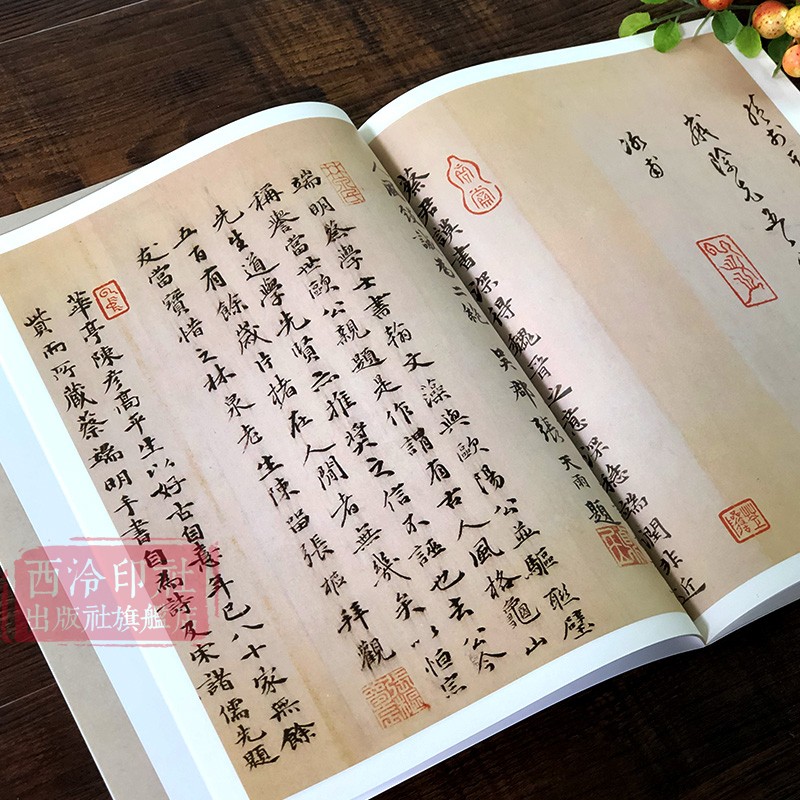 蔡君謨書深得魏晉之意深穩端閏非近
吳郡張天雨題
端明蔡學士書翰文藻與歐陽公並驅聯璧
稱譽當世歐公親題是作謂有古人風格龜山
先生道學先賢亦推奬之信不誣也去公今
五百有餘歲片楮在人間者無幾矣以怕宗
友當寶惜之林泉老生陳留張樞拜觀
華亭陳彥高平生以好古自喜年已八十家無餘
貲而所藏蔡端明手書自為詩及宋諸儒先題
西泠印社
出版社旗艦店